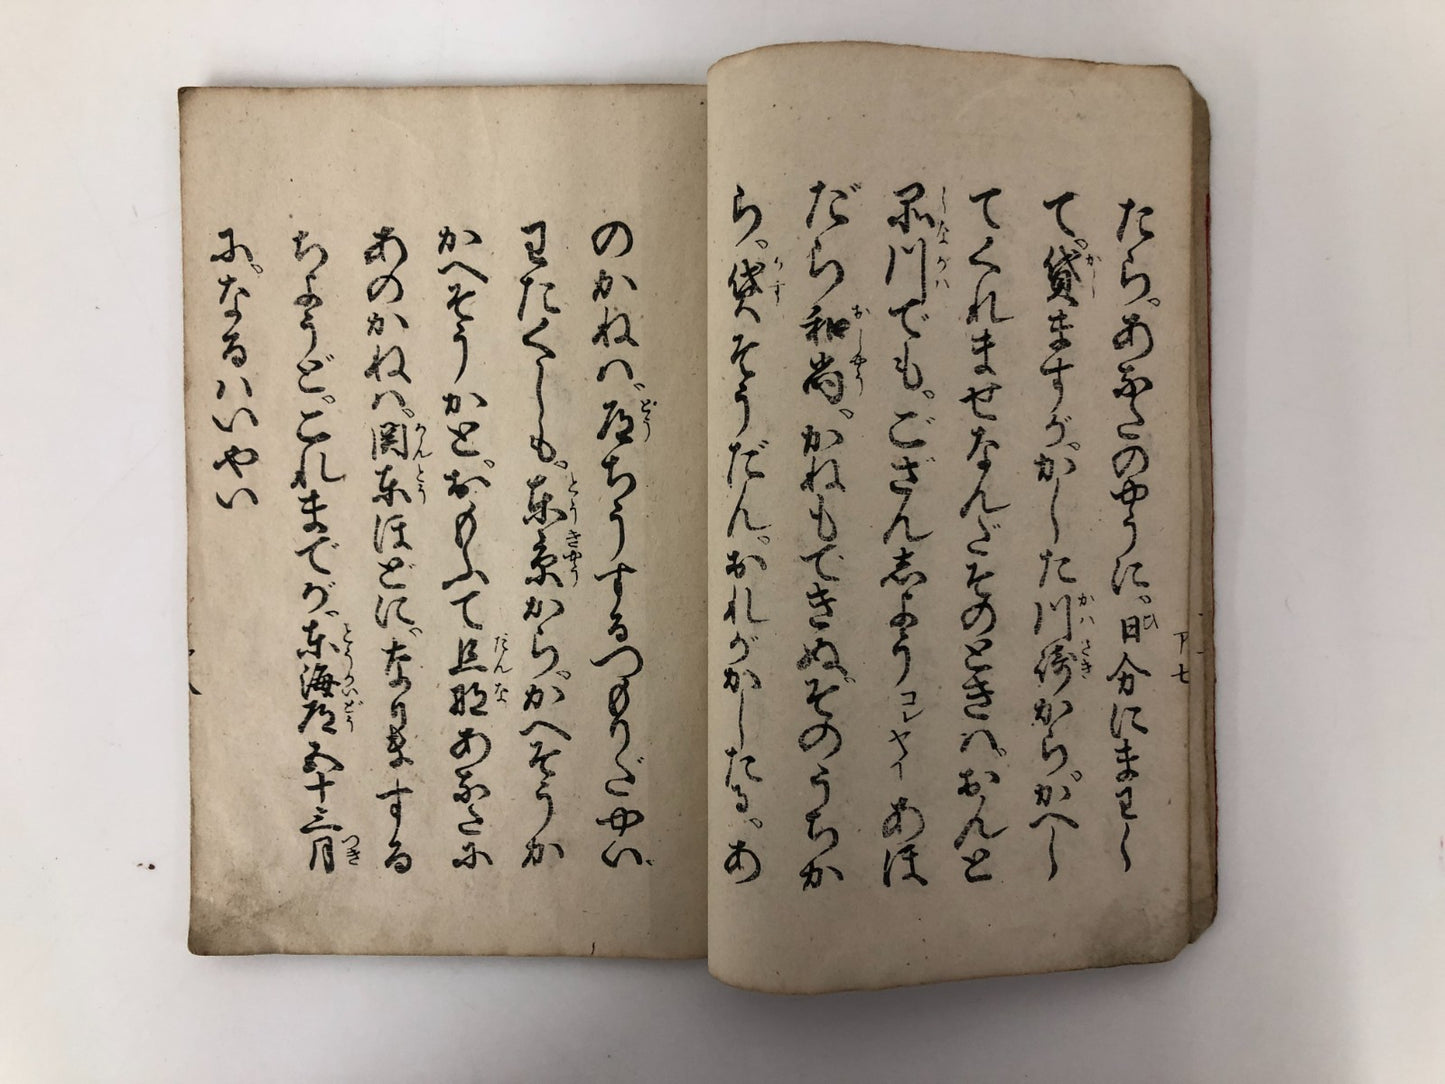 たら。あなたのやうに。日分にまわし
て。貸ますが。かした川崎から。かへし
てくれませなんだそのときハ。おんと
品川でも。ござんしようコレヤイあほ
だら和尚。かねもできぬ。そのうちか
ら。貸そうだん。おれがかしたる。あ
のかねハ。どうちうするつもりだやい。
わたくしも。東京から。かへそうか
かへそうかと。おもふて旦那あなたに
あのかねハ。関東ほどに。なりまする
ちようど。これまでが。東海道五十三月
に。なるハいやい
下七